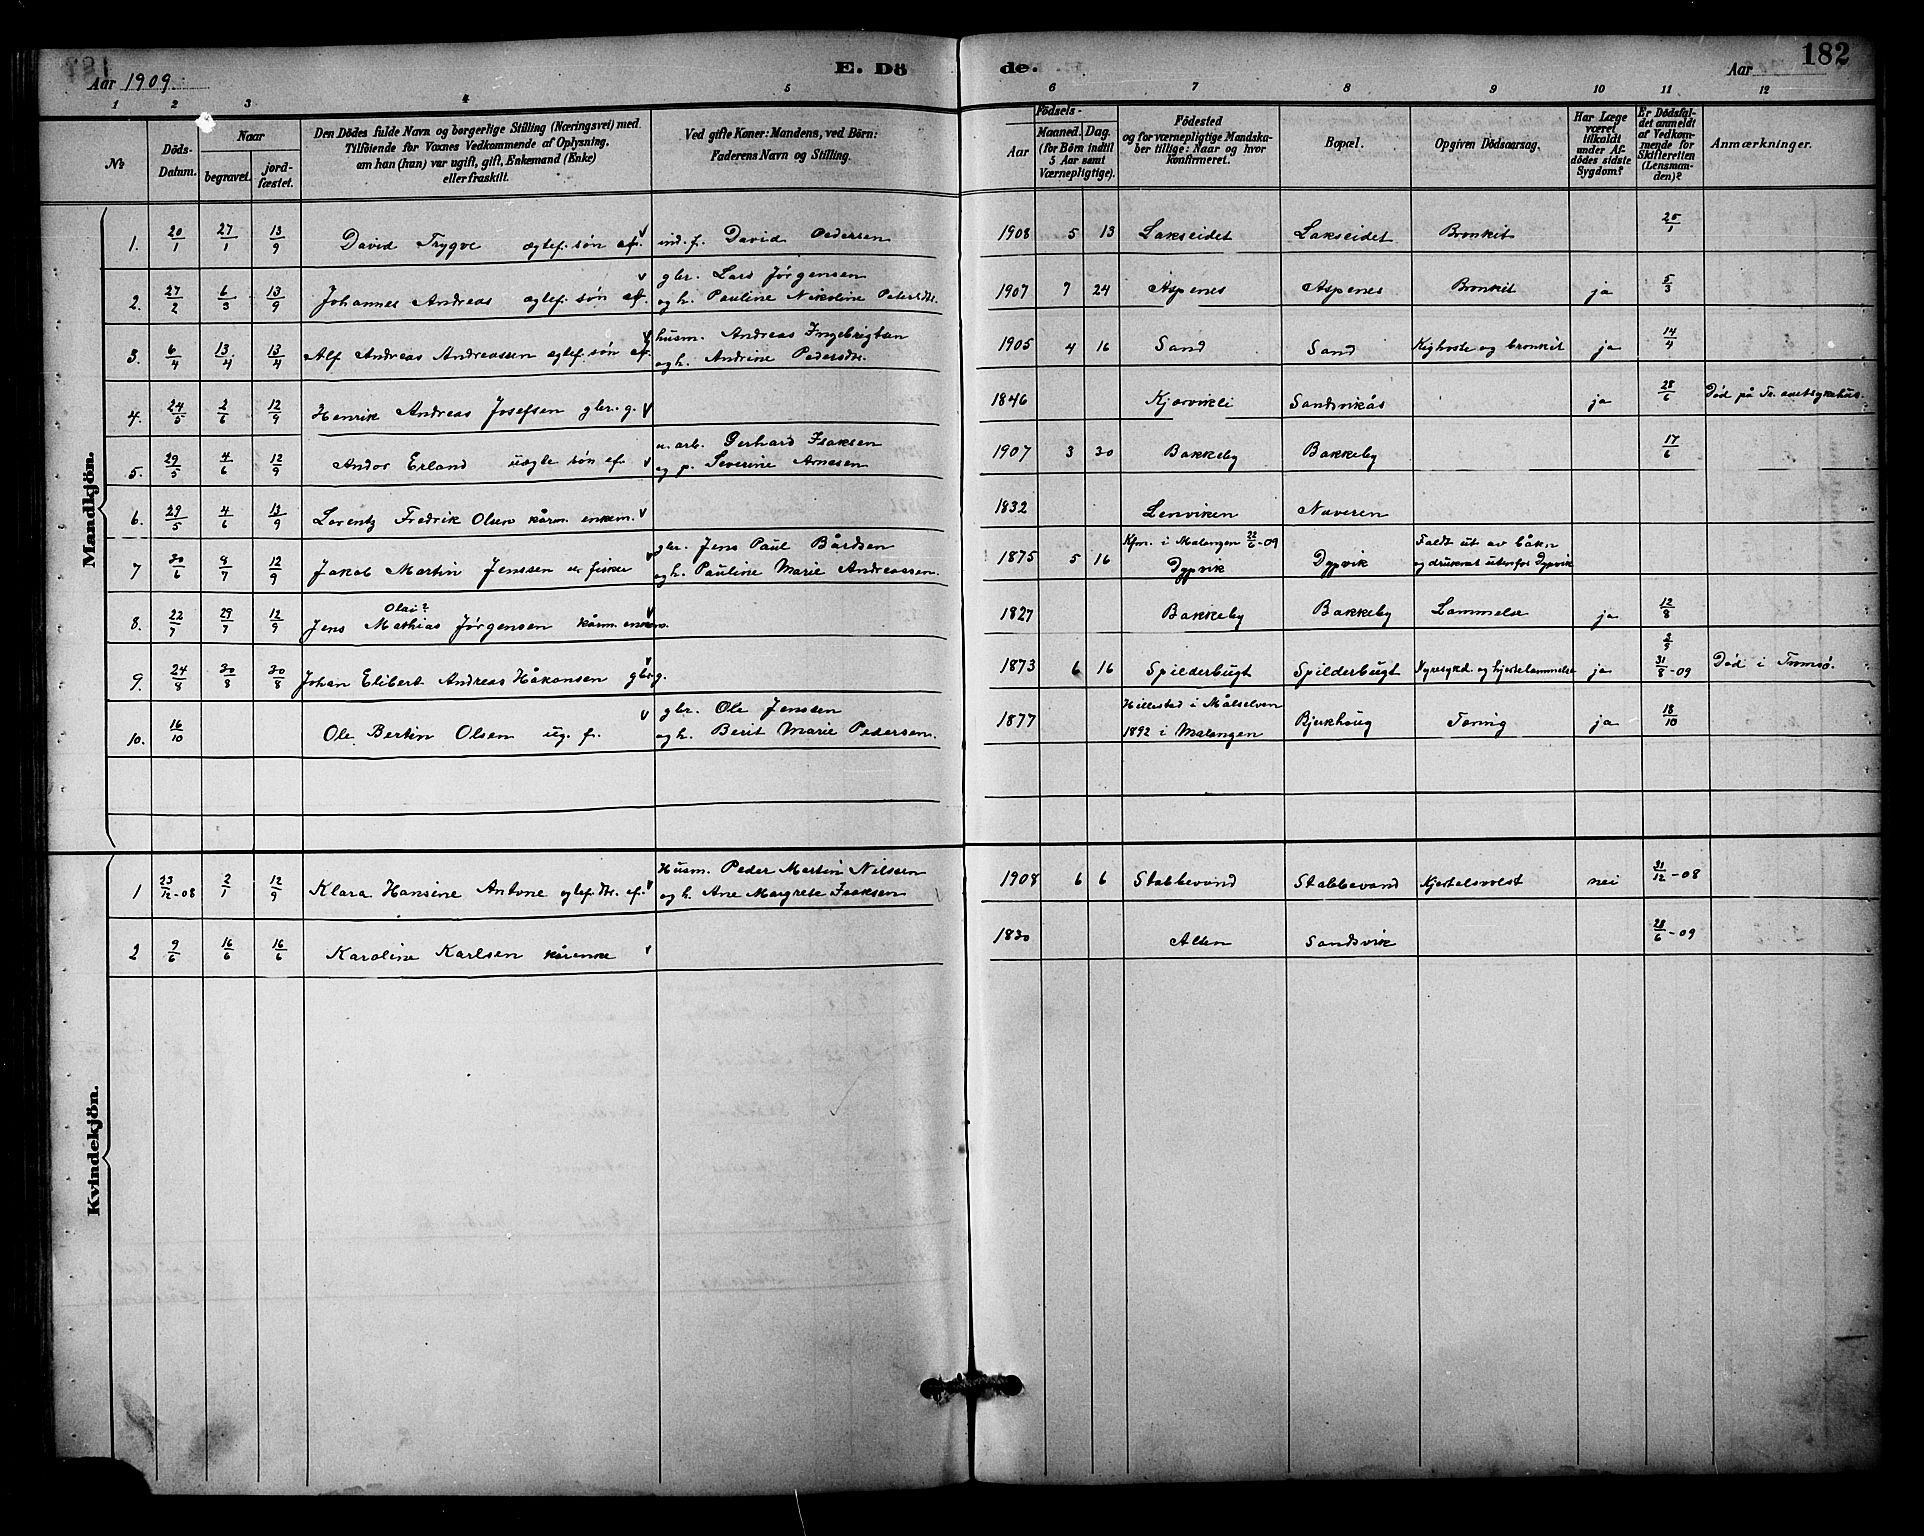 Aar 1909.
E. Dö
de.
Aar
182
1 2 3 4 5 6 7 8 9 10 11 12
№
Döds-Datum.
Naar
begravet.
jord-fæstet.
Den Dödes fulde Navn og borgerlige Stilling (Næringsvei) med
Tilföiende for Voxnes Vedkommende af Oplysning,
om han (hun) var ugift, gift, Enkemand (Enke)
eller fraskilt.
Ved gifte Koner: Mandens, ved Börn:
Faderens Navn og Stilling.
Födsels-
Aar
Maaned. Dag.
(for Börn indtil
5 Aar samt
Værnepligtige).
Födested
og for værnepligtige Mandska-
ber tillige: Naar og hvor
Konfirmeret.
Bopæl.
Opgiven Dödsaarsag.
Har Læge
været
tilkaldt
under Af-
dödes sidste
Sygdom?
Er Dödsfal-
det anmeldt
af Vedkom-
mende for
Skifteretten
(Lensman-
den)?
Anmærkninger.
Mandkjön.
1. 20/1 27/1 13/9 David Trygve ægtef. søn af v ind. f. David Pedersen 1908 5 13 Lakseidet Lakseidet Bronkit 25/1
2. 27/2 6/3 13/9 Johannes Andreas ægtef. søn af v gbr. Lars Jørgensen
og h. Pauline Nikoline Petersdtr. 1907 7 24 Aspenes Aspenes Bronkit ja 5/3
3. 6/4 13/4 13/4 Alf Andreas Andreassen ægtef. søn af v husm. Andreas Ingebrigtsen
og h. Andrine Pedersdtr. 1905 4 16 Sand Sand Kighoste og bronkit ja 14/4
4. 24/5 2/6 12/9 Henrik Andreas Josefsen gbr. g. v 1846 Kjorvikli Sandvikås ja 28/6 Død på
5. 29/5 4/6 12/9 Andor Erland uægte søn af v u. arb. Gerhard Isaksen
og p. Severine Arnesen 1907 3 30 Bakkeby Bakkeby 17/6
6. 29/5 4/6 13/9 Lorentz Fredrik Olsen kårm. enkem. v 1832 Lenviken Naveren
7 30/6 9/7 12/9 Jakob Martin Jenssen fisker v gbr. Jens Paul Bårdsen
og h. Pauline Marie Andreassen. 1875 5 16 Kfm. i Malangen 22/6-09
Dypvik Dypvik Faldt ut av båten
og druknet utenfor Dypvik
8. 22/7 29/7 12/9 Olai?
Jens Mathias Jørgensen kårm. enkem. v 1827 Bakkeby Bakkeby Lammelse ja 12/8
9. 24/8 30/8 30/8 Johan Elibert Andreas Håkonsen gbr. g. v 1873 6 16 Spilderbugt Spilderbugt Nyresygd. og hjertelammelse ja 2/9
31/8-09 Død i Tromsø.
10. 16/10 Ole Bertin Olsen ug. f. v gbr. Ole Jenssen
og h. Berit Marie Pedersen. 1877 Hillestad i Målselven
1892 i Malangen Bjerkhoug Tæring ja 18/10
Kvindekjön.
1 23/12-08 2/1 12/9 Klara Hansine Antone ægtef. dtr. af v Husm. Peder Martin Nilsen
og h. Ane Margrete Isaksen 1908 6 6 Stabbevand Stabbevand Kjertelsvolst nei 31/12-08
2 9/6 16/6 16/6 Karoline Karlsen kårenke v 1830 Alten Sandsvik 28/6-09